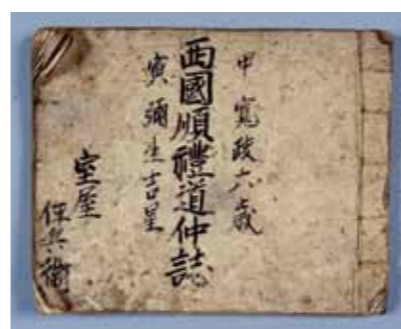 甲 寛政六歳
西國順禮道仲誌
寅 彌生吉星
室屋
保兵衞